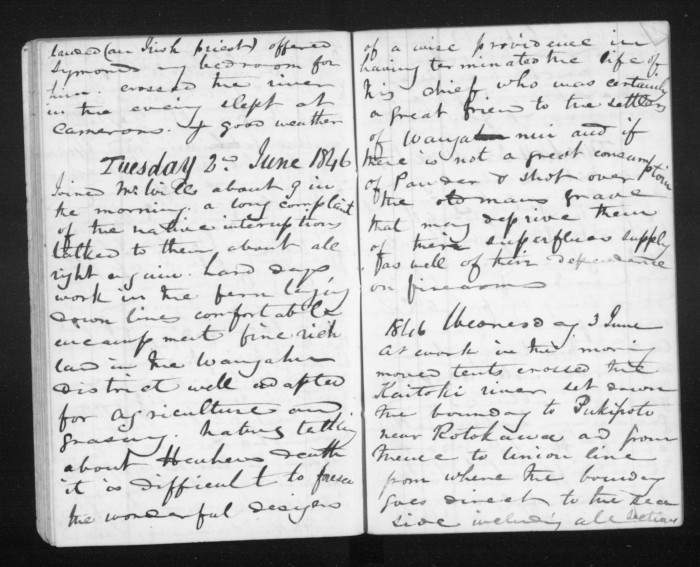 landed (an Irish priest) offered
Symonds my bedroom for
him. crossed the river
in the evening slept at
Camerons. good weather
Tuesday 2nd June 1846
Joined Mr Wills about 9 in
the morning. a long complaint
of the native interruptions
talked to them about all
right again. hard days
work in the fern laying
down lines comfortable
encampment fine rich
land in the Wangaehu
district well adapted
for agriculture and
grasing. natives talking
about Heuheus death
it is difficult to forsee
the wonderful designs
of a wise providence in
having terminated the life of
his chief who was certainly
a great frien to the settlers
of Wanganui and if
there is not a great consumption
of Pauder & shot over
the old mans grave
that may deprive them
of their superflues supply
as well of their dependance
on firearms
1846 Wednesday 3 June
at work in the morning
moved tents crossed the
Kaitoki river set down
the boundary to Pukipoto
near Rotokawa ad from
thence to Union line
from where the boundary
goes direct to the sea
side including all sections